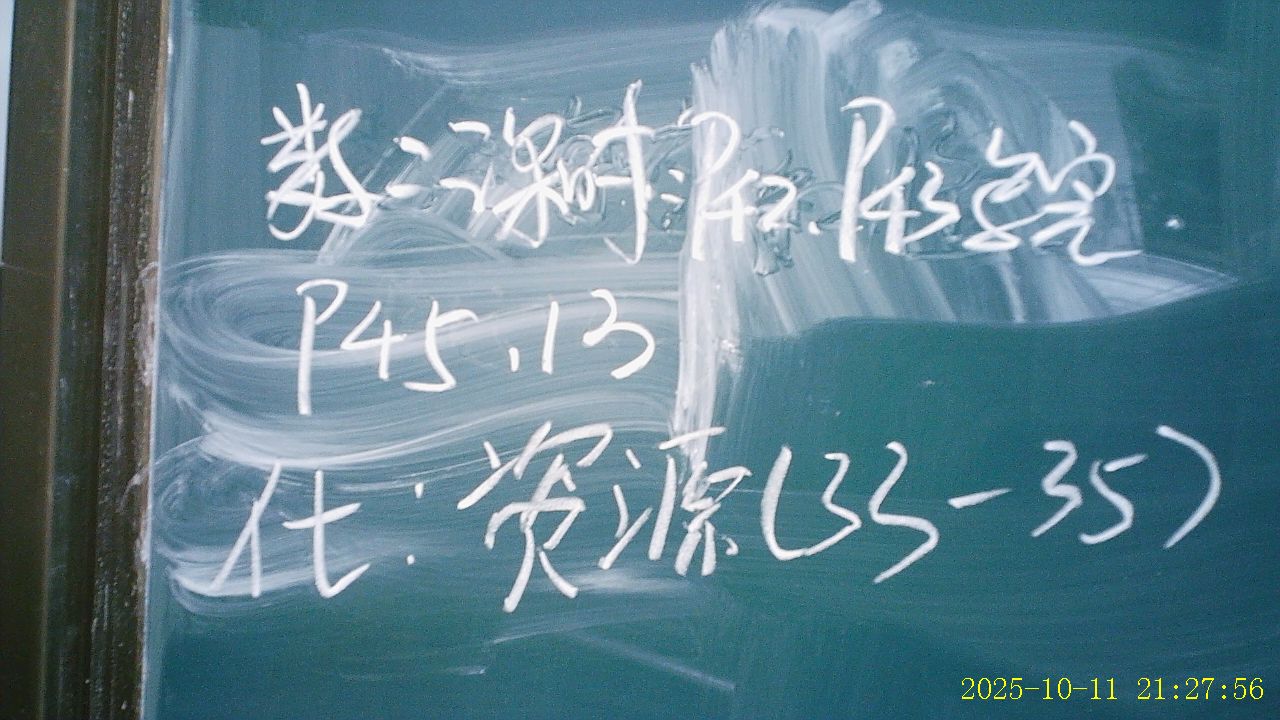 数:课时:P42、P43完
P45.13
化:资源(33-35)
2025-10-11 21:27:56